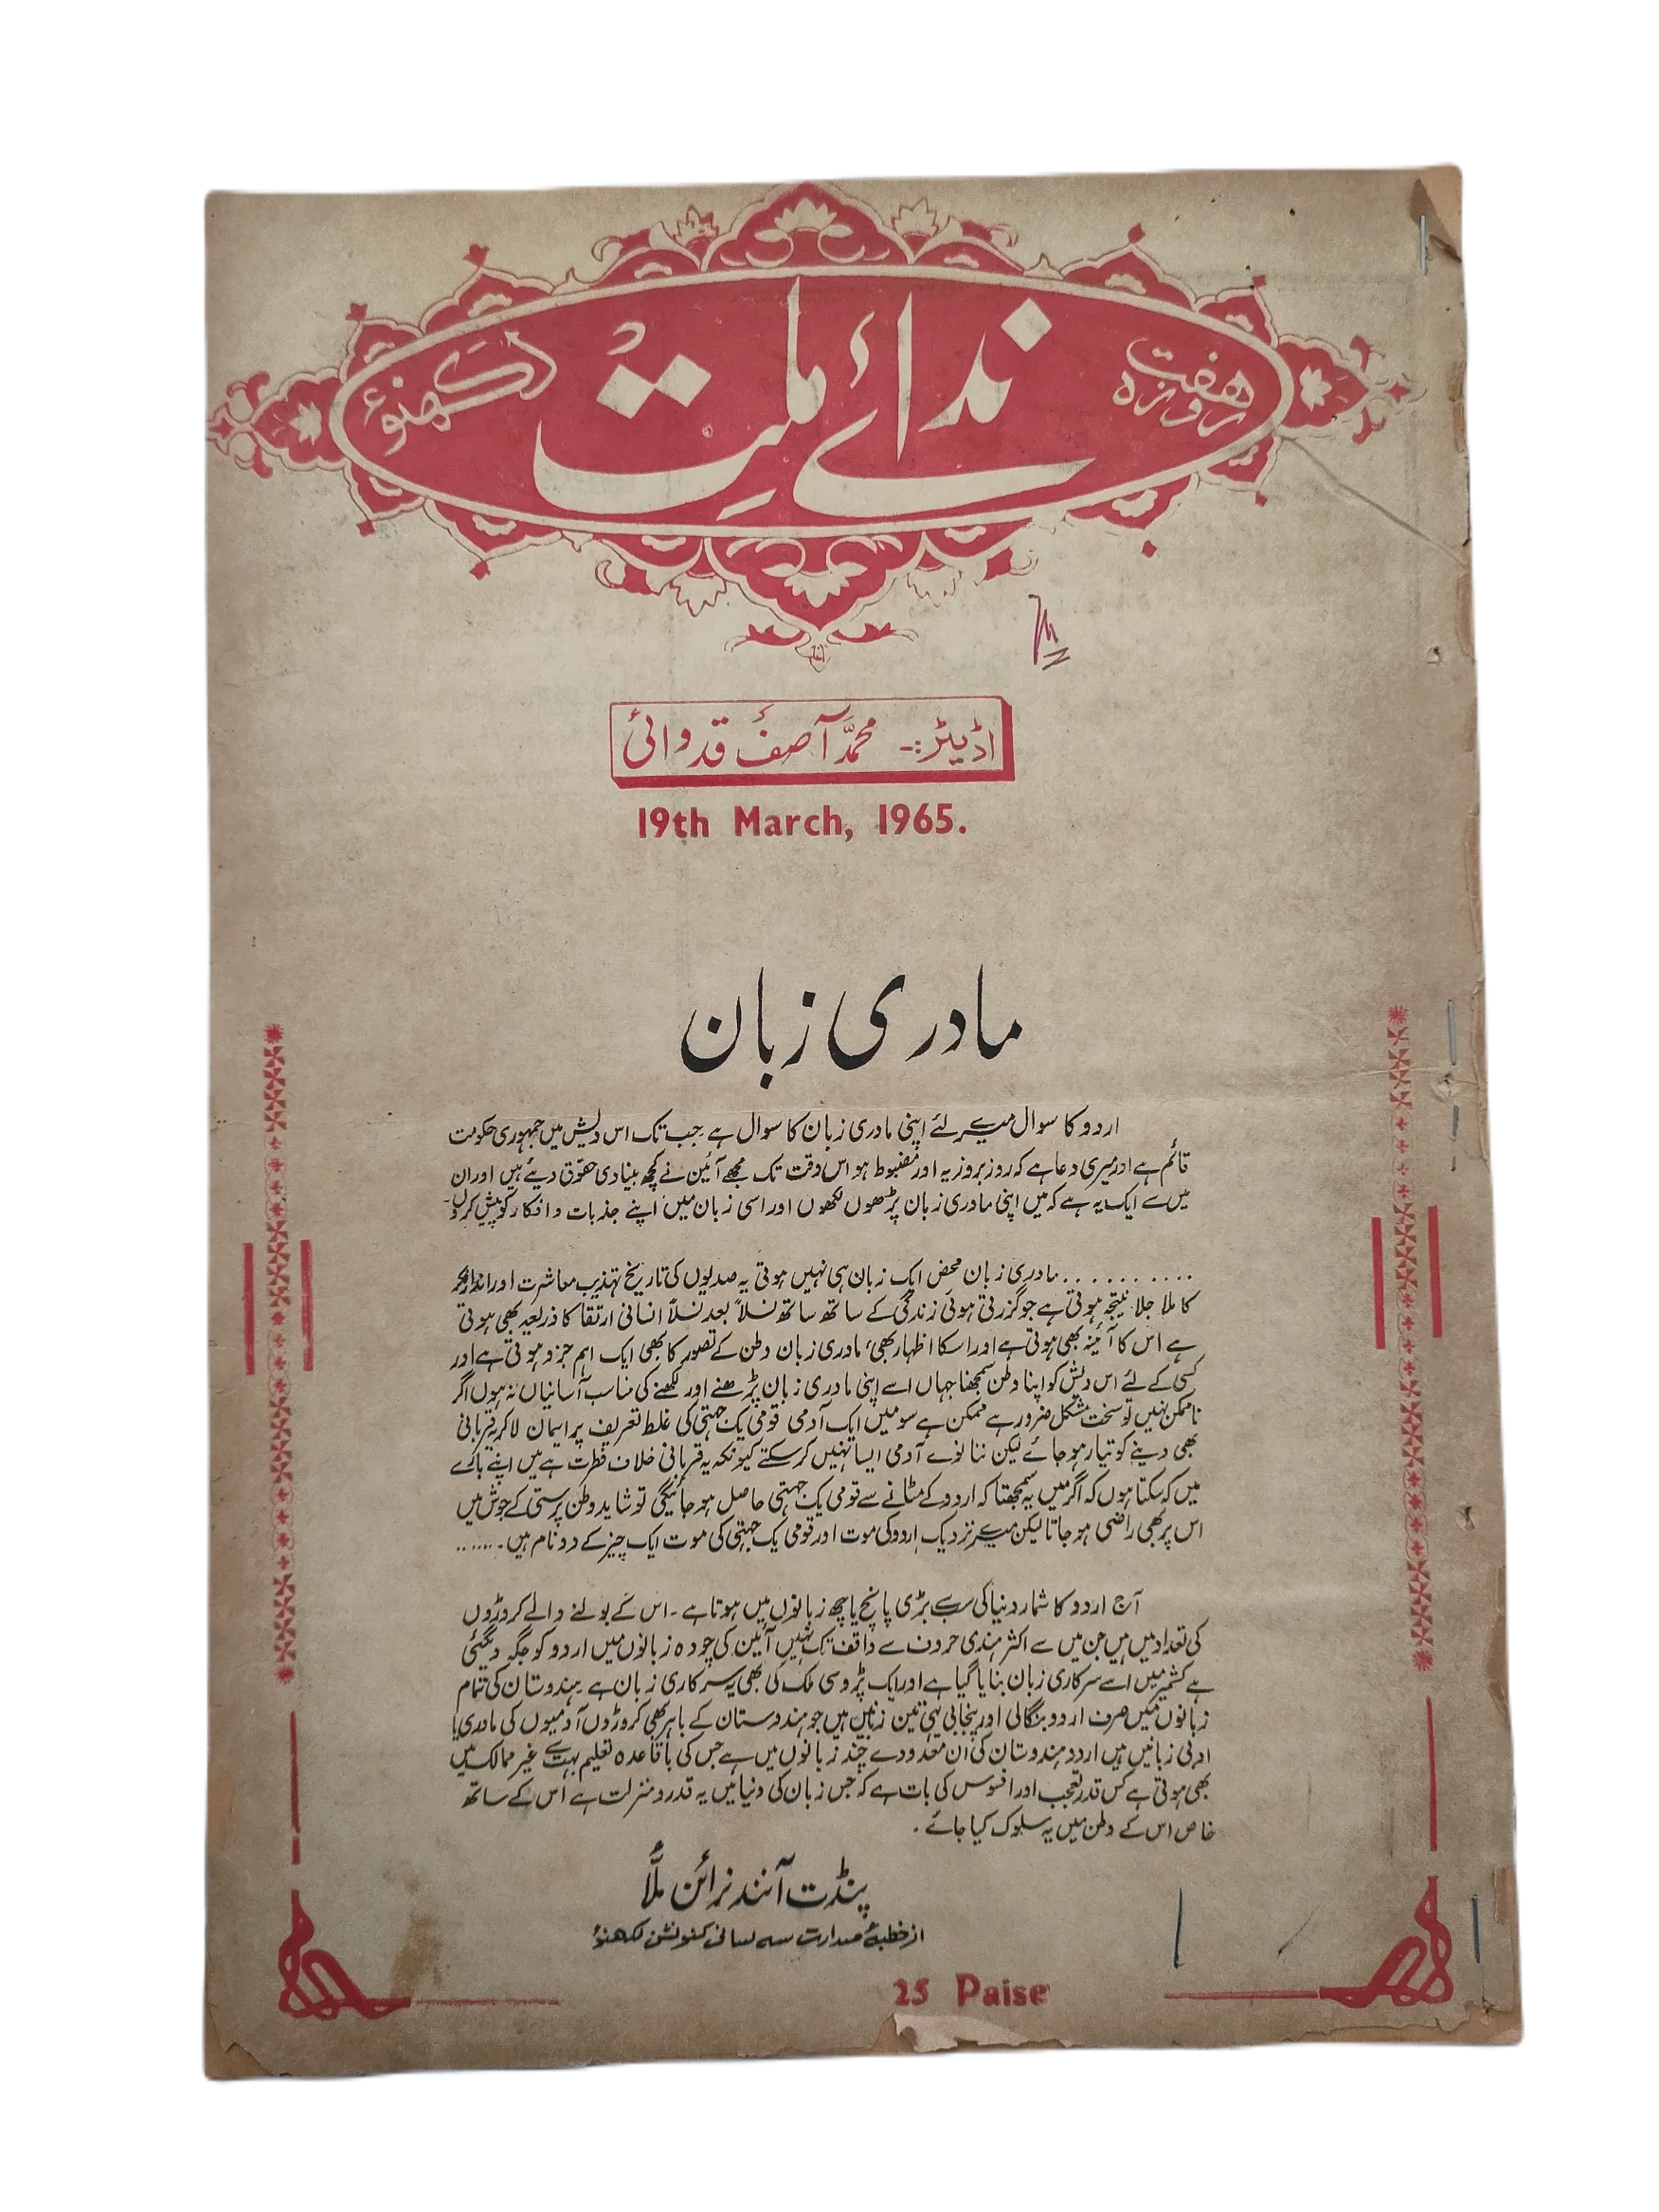 هفت روزہ
ندائے ملت
لکھنؤ
اڈیٹر:- محمد آصف قدوائی
19th March, 1965.
مادری زبان
اردو کا سوال میرے لئے اپنی مادری زبان کا سوال ہے جب تک اس دیش میں جمہوری حکومت
قائم ہے اور میری دعا ہے کہ روز بروز یہ اور مضبوط ہو اس وقت تک مجھے آئین نے کچھ بنیادی حقوق دیئے ہیں اور ان
میں سے ایک یہ ہے کہ میں اپنی مادری زبان پڑھوں لکھوں اور اسی زبان میں اپنے جذبات و افکار کو پیش کروں۔
........... مادری زبان محض ایک زبان ہی نہیں ہوتی یہ صدیوں کی تاریخ تہذیب معاشرت اور انداز فکر
کا ملا جلا نتیجہ ہوتی ہے جو گزرتی ہوئی زندگی کے ساتھ ساتھ نسلاً بعد نسلاً انسانی ارتقا کا ذریعہ بھی ہوتی
ہے اس کا آئینہ بھی ہوتی ہے اور اسکا اظہار بھی، مادری زبان وطن کے تصور کا بھی ایک اہم جزو ہوتی ہے اور
کسی کے لئے اس دیش کو اپنا وطن سمجھنا جہاں اسے اپنی مادری زبان پڑھنے اور لکھنے کی مناسب آسانیاں نہ ہوں اگر
ناممکن نہیں تو سخت مشکل ضرور ہے ممکن ہے سو میں ایک آدمی قومی یک جہتی کی غلط تعریف پر ایمان لا کر یہ قربانی
بھی دینے کو تیار ہو جائے لیکن ننانوے آدمی ایسا نہیں کر سکتے کیونکہ یہ قربانی خلاف فطرت ہے میں اپنے بارے
میں کہ سکتا ہوں کہ اگر میں یہ سمجھتا کہ اردو کے مٹانے سے قومی یک جہتی حاصل ہو جائیگی تو شاید وطن پرستی کے جوش میں
اس پر بھی راضی ہو جاتا لیکن میرے نزدیک اردو کی موت اور قومی یک جہتی کی موت ایک چیز کے دو نام ہیں۔......
آج اردو کا شمار دنیا کی سب سے بڑی پانچ یا چھ زبانوں میں ہوتا ہے۔ اس کے بولنے والے کروڑوں
کی تعداد میں ہیں جن میں سے اکثر ہندی حروف سے واقف تک نہیں آئین کی چودہ زبانوں میں اردو کو جگہ دیگئی
ہے کشمیر میں اسے سرکاری زبان بنایا گیا ہے اور ایک پڑوسی ملک کی بھی یہ سرکاری زبان ہے۔ ہندوستان کی تمام
زبانوں میں صرف اردو بنگالی اور پنجابی یہی تین زبانیں ہیں جو ہندوستان کے باہر بھی کروڑوں آدمیوں کی مادری یا
ادبی زبانیں ہیں اردو ہندوستان کی ان معدودے چند زبانوں میں ہے جس کی باقاعدہ تعلیم بہت سے غیر ممالک میں
بھی ہوتی ہے کس قدر تعجب اور افسوس کی بات ہے کہ جس زبان کی دنیا میں یہ قدر و منزلت ہے اس کے ساتھ
خاص اس کے وطن میں یہ سلوک کیا جائے۔
پنڈت آنند نرائن ملّا
از خطبۂ صدارت سہ لسانی کنونشن لکھنؤ
25 Paise